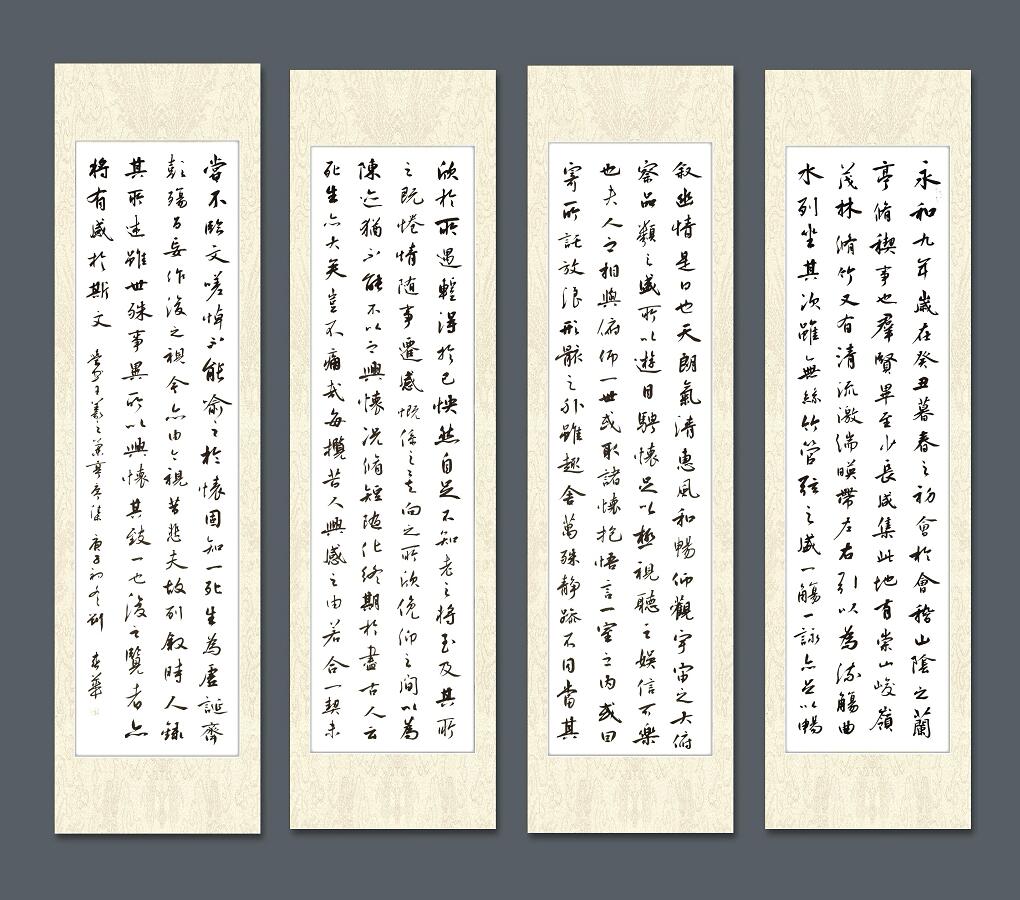 永和九年歲在癸丑暮春之初會於會稽山陰之蘭
亭脩稧事也羣賢畢至少長咸集此地有崇山峻嶺
茂林脩竹又有清流激湍暎帶左右引以為流觴曲
水列坐其次雖無絲竹管弦之盛一觴一詠亦足以暢
敘幽情是日也天朗氣清惠風和暢仰觀宇宙之大俯
察品類之盛所以遊目騁懷足以極視聽之娛信可樂
也夫人之相與俯仰一世或取諸懷抱悟言一室之內或因
寄所託放浪形骸之外雖趣舍萬殊靜躁不同當其
欣於所遇蹔得於己怏然自足不知老之將至及其所
之既惓情隨事遷感慨係之矣向之所欣俛仰之間以為
陳迹猶不能不以之興懷況脩短隨化終期於盡古人云
死生亦大矣豈不痛哉每攬昔人興感之由若合一契未
嘗不臨文嗟悼不能喻之於懷固知一死生為虛誕齊
彭殤為妄作後之視今亦由今視昔悲夫故列敘時人錄
其所述雖世殊事異所以興懷其致一也後之覽者亦
將有感於斯文 王羲之蘭亭 庚子初冬